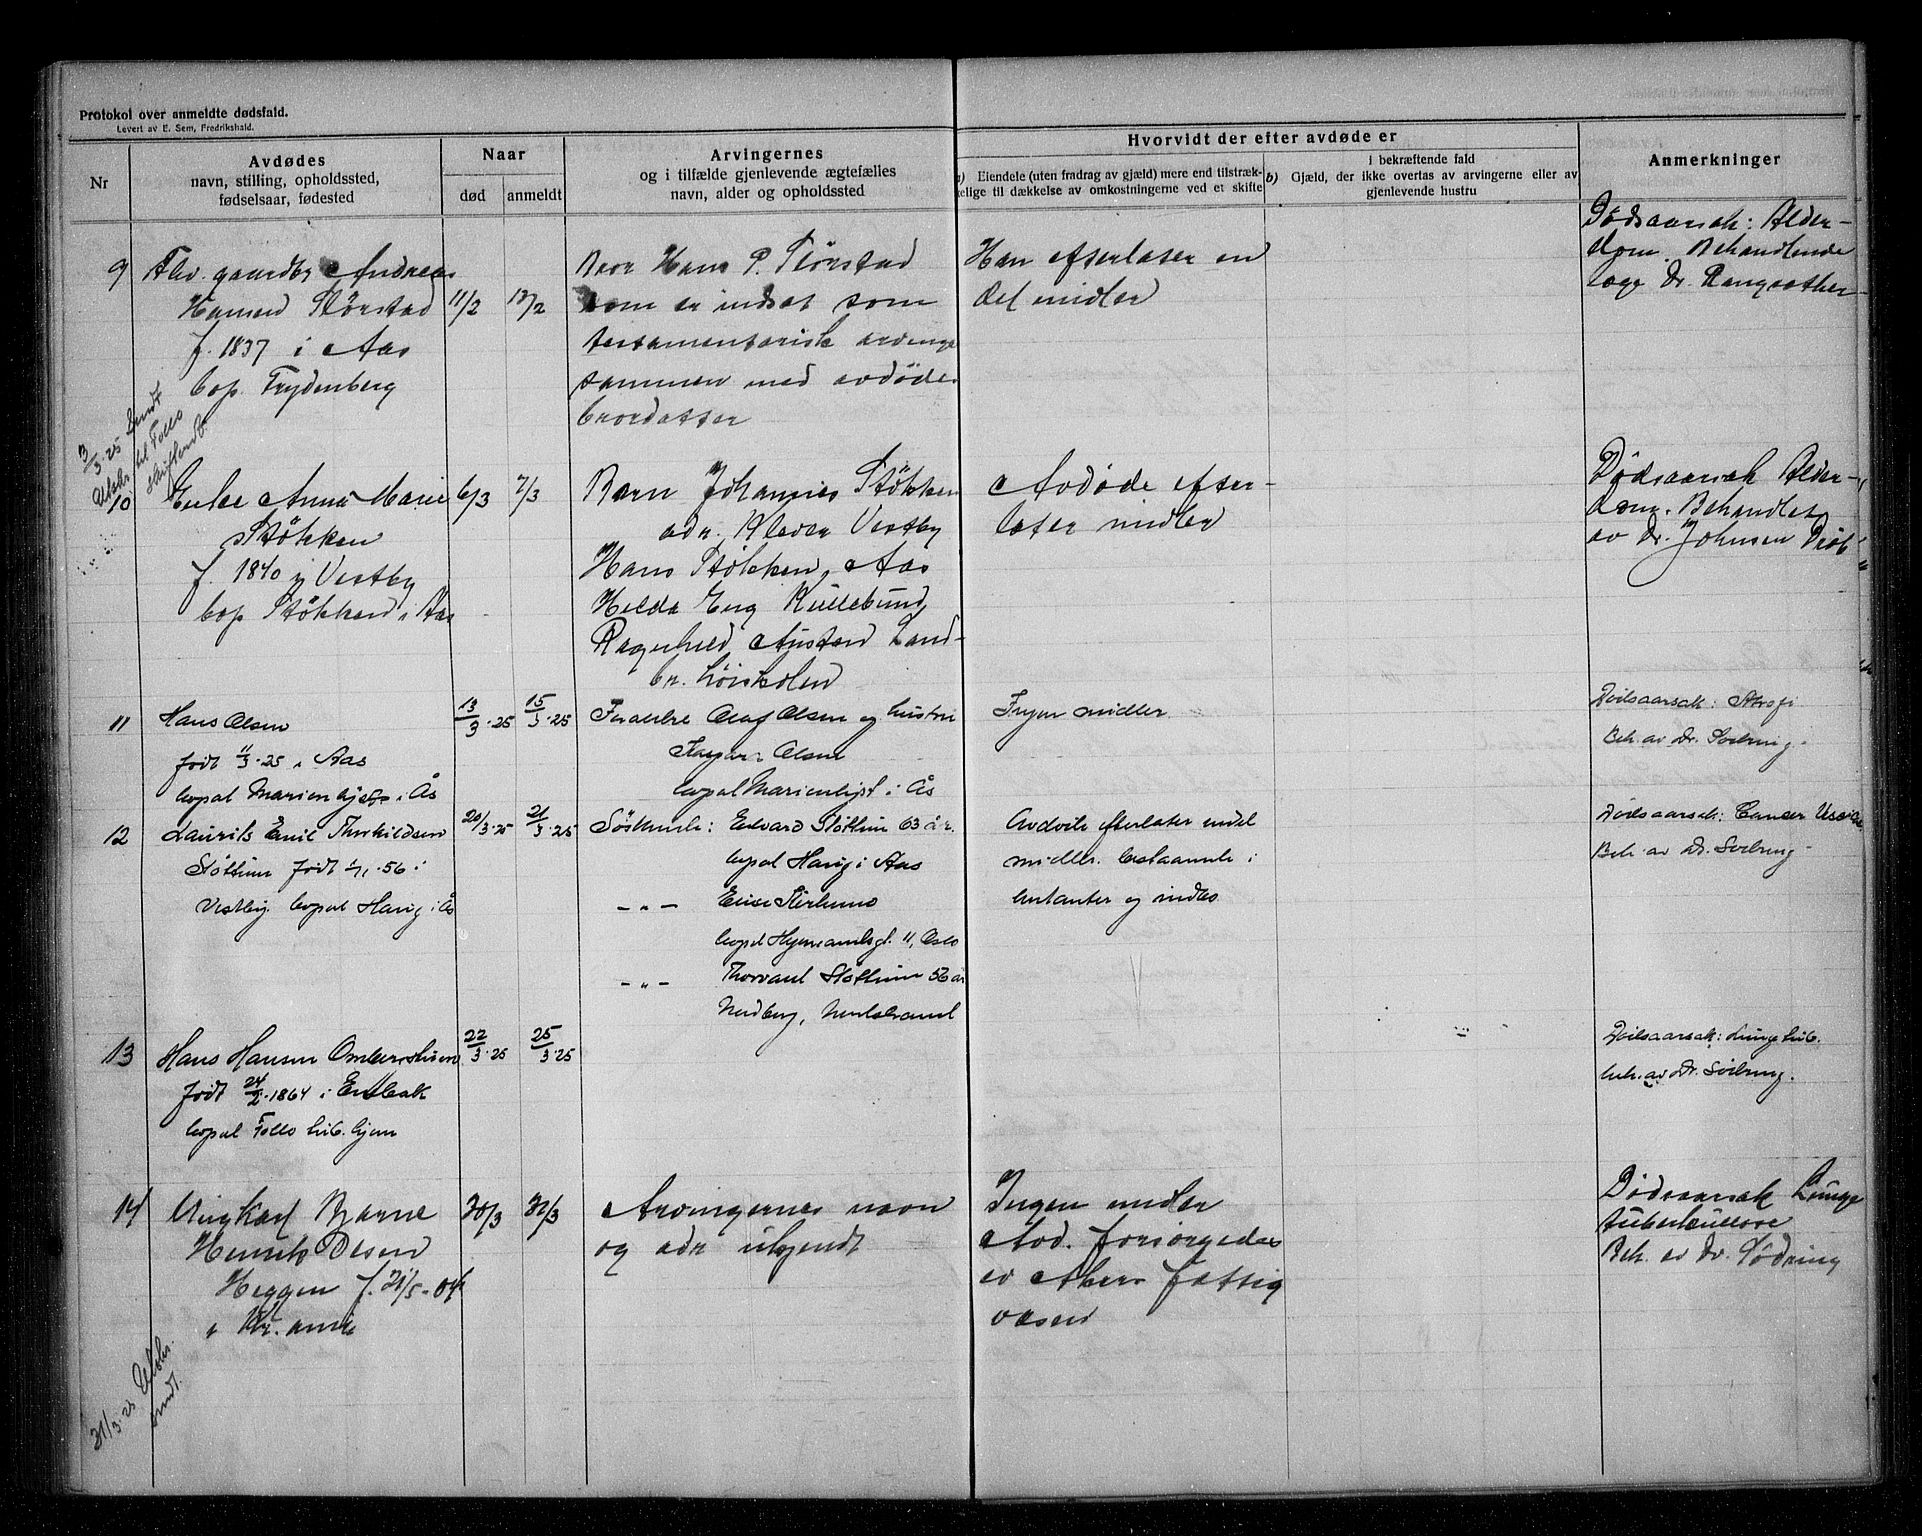 Protokol over anmeldte dødsfald.
Levert av E. Sem, Fredrikshald.
Nr
Avdødes
navn, stilling, opholdssted,
fødselsaar, fødested
Naar
død
anmeldt
Arvingernes
og i tilfælde gjenlevende ægtefælles
navn, alder og opholdssted
Hvorvidt der efter avdøde er
a) Eiendele (uten fradrag av gjæld) mere end tilstræk-
kelige til dækkelse av omkostningerne ved et skifte
b) i bekræftende fald
Gjæld, der ikke overtas av arvingerne eller av
gjenlevende hustru
Anmerkninger
9
Fhv. gaardbr Andreas
Hansen Størstad
f. 1837 i Aas
bop. Frydenberg
11/2
13/2
Bror Hans P. Størstad
som er indsat som
testamentarisk arvinge
sammen med avdødes
brordatter
Han efterlater en
del midler
Dødsaarsak: Alder-
dom. Behandlende
læge Dr.
3/3.25 Sendt
Utskr. til Follo
10
Enke Anna Marie
Støkken
f. 1840 i Vestby
bop Støkken i Aas
6/3
7/3
Barn Johannes Støkken
adr. Klever Vestby
Hans Støkken, Aas
Helda Eng Kullebund
Ragnhild Austad Land-
br. høiskolen
Avdøde efter-
later midler
Dødsaarsak Alder-
dom. Behandlet
av Dr. Johnsen Drøb.
11
Hans Olsen
født 11/3.25 i Aas
bopæl Marienlyst i Ås
13/3.25
15/3.25
Forældre Olaf Olsen og hustru
Olsen
bopæl Marienlyst i Ås
Ingen midler
Dødsaarsak: Atrofi
Beh. av Dr. Södring.
12
Laurits Emil Thorkildsen
Støttum født 1/1.56 i
Vestby. bopæl Haug i Ås
20/3.25
21/3.25
Søskende: Edvard Støttum 63 år.
bopæl Haug i Aas
— " —
bopæl 11, Oslo
— " — Thorvald Støttum 56 år
Avdøde efterlater endel
midler bestaaende i
kontanter og indbo
Dødsaarsak: Cancer
Beh. av Dr. Södring
13
Hans Hansen
født 24/2.1864 i Enebak
bopæl Follo tub. hjem
22/3.25
25/3.25
Dødsaarsak: Lungetub.
beh. av Dr. Södring.
14
Ungkarl Bjarne
Henrik Olsen
Heggen f. 31/5-04
i Kr.ania
30/3
31/3
Arvingernes navn
og adr ukjendt
Ingen midler
Avd. forsørgedes
av Akers fattig
væsen
Dødsaarsak Lunge
tuberkullose
Beh. av Dr. Södring
31/3.25 Utskr.
sendt.